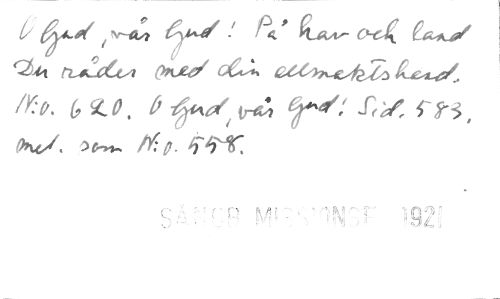 O Gud, vår Gud! På hav och land
Du råder med din allmaktshand.
N:o. 620. O Gud, vår Gud! Sid. 583.
mel. som N:o. 558.
SÅNGB MISSIONSF 1921